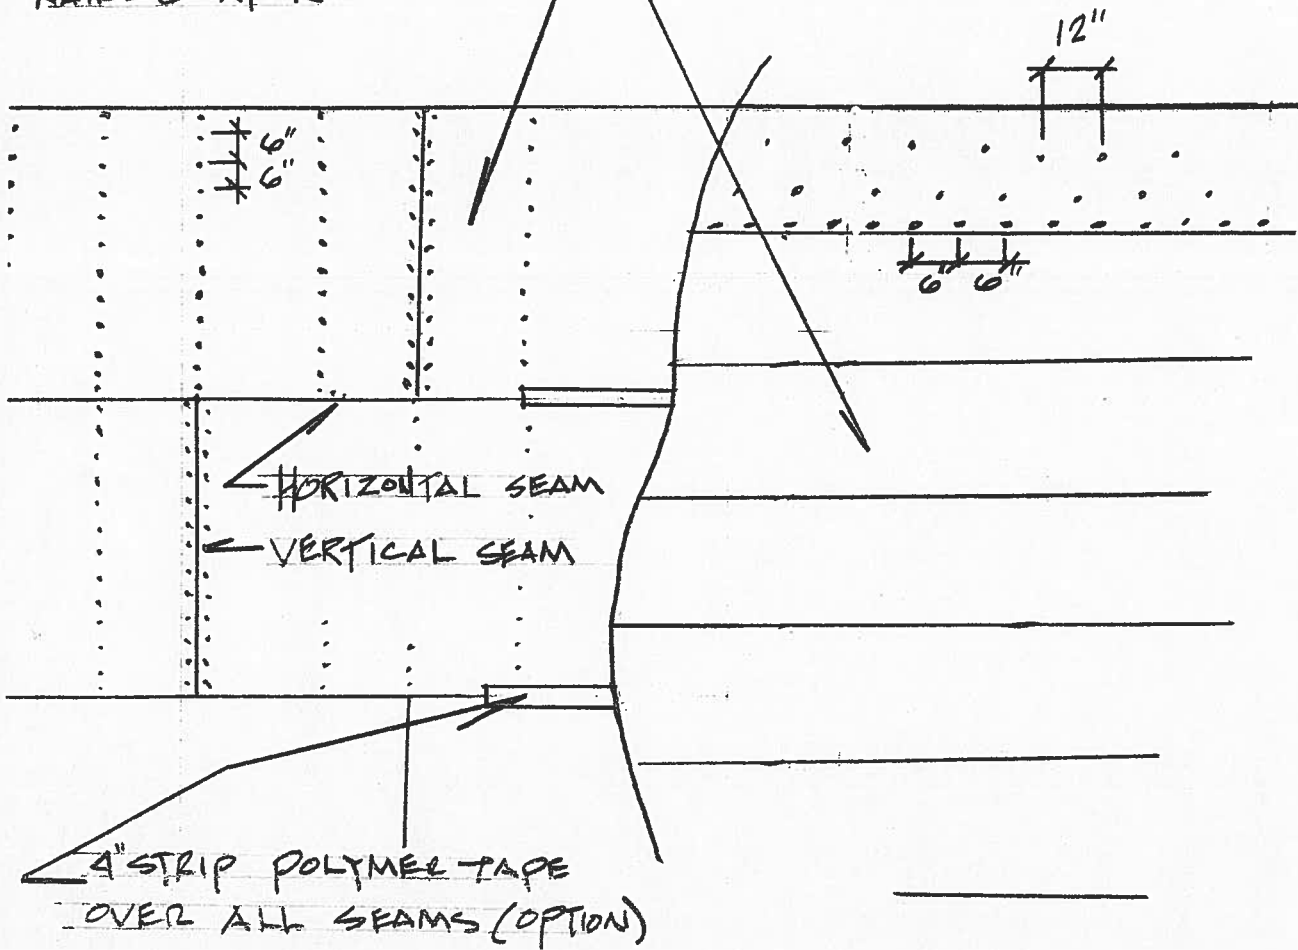 12"
6"
6"
6" 6"
HORIZONTAL SEAM
VERTICAL SEAM
4" STRIP POLYMER TAPE
OVER ALL SEAMS (OPTION)